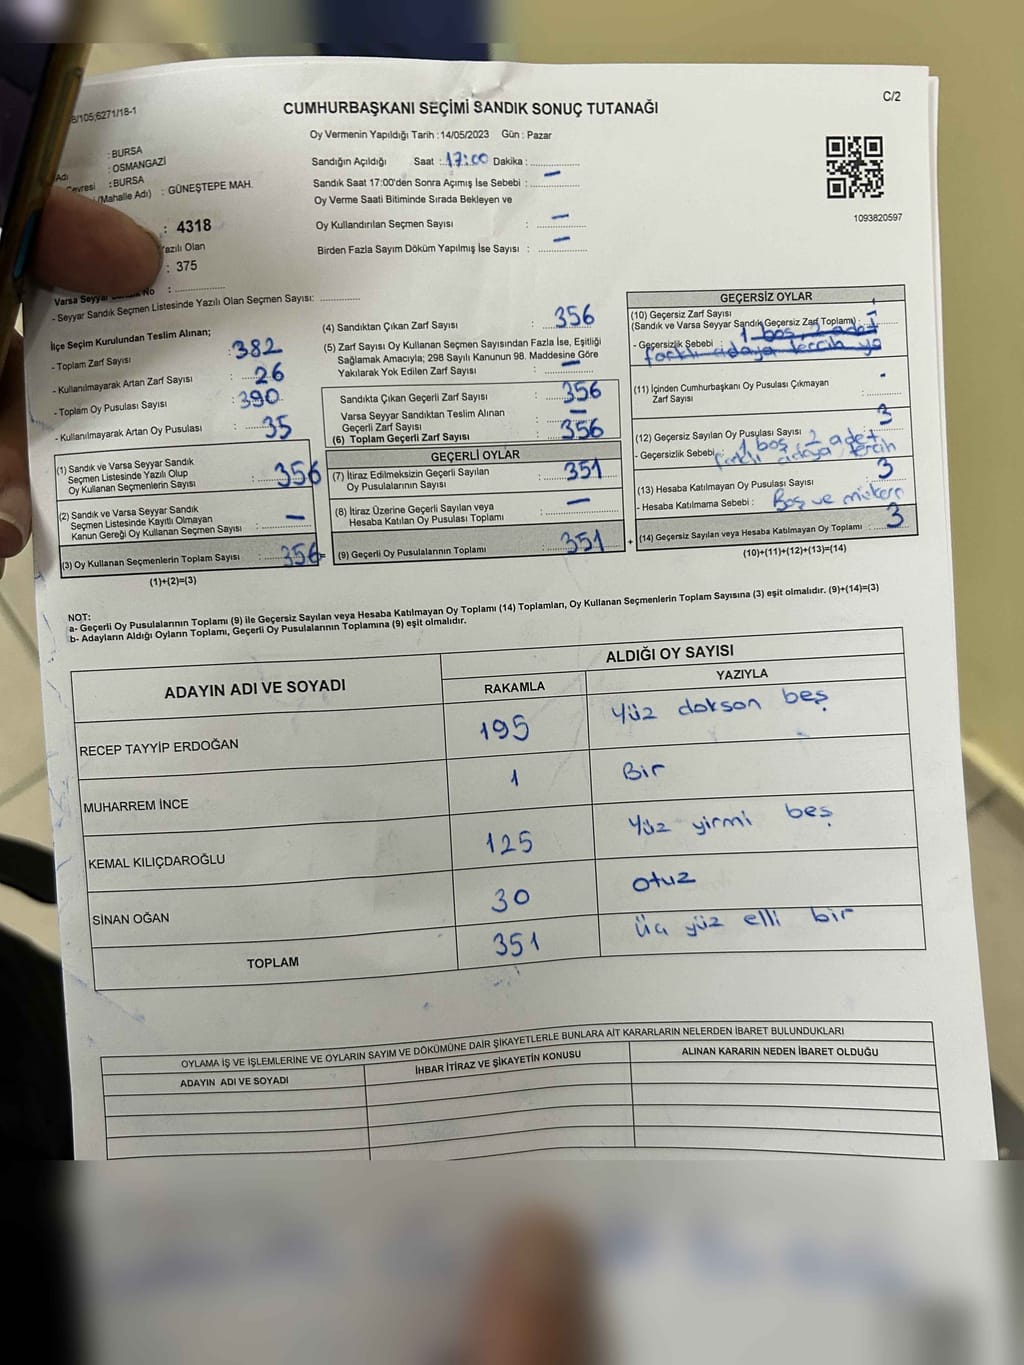 B/105;6271/18-1
C/2
CUMHURBAŞKANI SEÇİMİ SANDIK SONUÇ TUTANAĞI
Oy Vermenin Yapıldığı Tarih : 14/05/2023 Gün : Pazar
: BURSA
Adı : OSMANGAZİ
Çevresi : BURSA
(Mahalle Adı) : GÜNEŞTEPE MAH.
: 4318
Yazılı Olan
: 375
No :
Sandığın Açıldığı Saat : 17:00 Dakika :
Sandık Saat 17:00'den Sonra Açımış İse Sebebi : –
Oy Verme Saati Bitiminde Sırada Bekleyen ve
Oy Kullandırılan Seçmen Sayısı : –
Birden Fazla Sayım Döküm Yapılmış İse Sayısı : –
1093820597
Varsa Seyyar
- Seyyar Sandık Seçmen Listesinde Yazılı Olan Seçmen Sayısı:
İlçe Seçim Kurulundan Teslim Alınan;
- Toplam Zarf Sayısı : 382
- Kullanılmayarak Artan Zarf Sayısı : 26
- Toplam Oy Pusulası Sayısı : 390
- Kullanılmayarak Artan Oy Pusulası : 35
(1) Sandık ve Varsa Seyyar Sandık
Seçmen Listesinde Yazılı Olup
Oy Kullanan Seçmenlerin Sayısı : 356
(2) Sandık ve Varsa Seyyar Sandık
Seçmen Listesinde Kayıtlı Olmayan
Kanun Gereği Oy Kullanan Seçmen Sayısı : –
(3) Oy Kullanan Seçmenlerin Toplam Sayısı : 356 =
(1)+(2)=(3)
(4) Sandıktan Çıkan Zarf Sayısı : 356
(5) Zarf Sayısı Oy Kullanan Seçmen Sayısından Fazla İse, Eşitliği
Sağlamak Amacıyla; 298 Sayılı Kanunun 98. Maddesine Göre
Yakılarak Yok Edilen Zarf Sayısı : –
Sandıkta Çıkan Geçerli Zarf Sayısı : 356
Varsa Seyyar Sandıktan Teslim Alınan
Geçerli Zarf Sayısı : –
(6) Toplam Geçerli Zarf Sayısı : 356
GEÇERLİ OYLAR
(7) İtiraz Edilmeksizin Geçerli Sayılan
Oy Pusulalarının Sayısı : 351
(8) İtiraz Üzerine Geçerli Sayılan veya
Hesaba Katılan Oy Pusulası Toplamı : –
(9) Geçerli Oy Pusulalarının Toplamı : 351 +
GEÇERSİZ OYLAR
(10) Geçersiz Zarf Sayısı
(Sandık ve Varsa Seyyar Sandık Geçersiz Zarf Toplamı) :
- Geçersizlik Sebebi : 1 boş, 2 adet
farklı adaya tercih ya
(11) İçinden Cumhurbaşkanı Oy Pusulası Çıkmayan
Zarf Sayısı : -
(12) Geçersiz Sayılan Oy Pusulası Sayısı : 3
- Geçersizlik Sebebi : 1 boş 2 adet
farklı adaya tercih
(13) Hesaba Katılmayan Oy Pusulası Sayısı : 3
- Hesaba Katılmama Sebebi : Boş ve
(14) Geçersiz Sayılan veya Hesaba Katılmayan Oy Toplamı : 3
(10)+(11)+(12)+(13)=(14)
NOT:
a- Geçerli Oy Pusulalarının Toplamı (9) ile Geçersiz Sayılan veya Hesaba Katılmayan Oy Toplamı (14) Toplamları, Oy Kullanan Seçmenlerin Toplam Sayısına (3) eşit olmalıdır. (9)+(14)=(3)
b- Adayların Aldığı Oyların Toplamı, Geçerli Oy Pusulalarının Toplamına (9) eşit olmalıdır.
ADAYIN ADI VE SOYADI
ALDIĞI OY SAYISI
RAKAMLA YAZIYLA
RECEP TAYYİP ERDOĞAN 195 Yüz dokson beş
MUHARREM İNCE 1 Bir
KEMAL KILIÇDAROĞLU 125 Yüz yirmi beş
SİNAN OĞAN 30 otuz
TOPLAM 351 Üç yüz elli bir
OYLAMA İŞ VE İŞLEMLERİNE VE OYLARIN SAYIM VE DÖKÜMÜNE DAİR ŞİKAYETLERLE BUNLARA AİT KARARLARIN NELERDEN İBARET BULUNDUKLARI
ADAYIN ADI VE SOYADI İHBAR İTİRAZ VE ŞİKAYETİN KONUSU ALINAN KARARIN NEDEN İBARET OLDUĞU